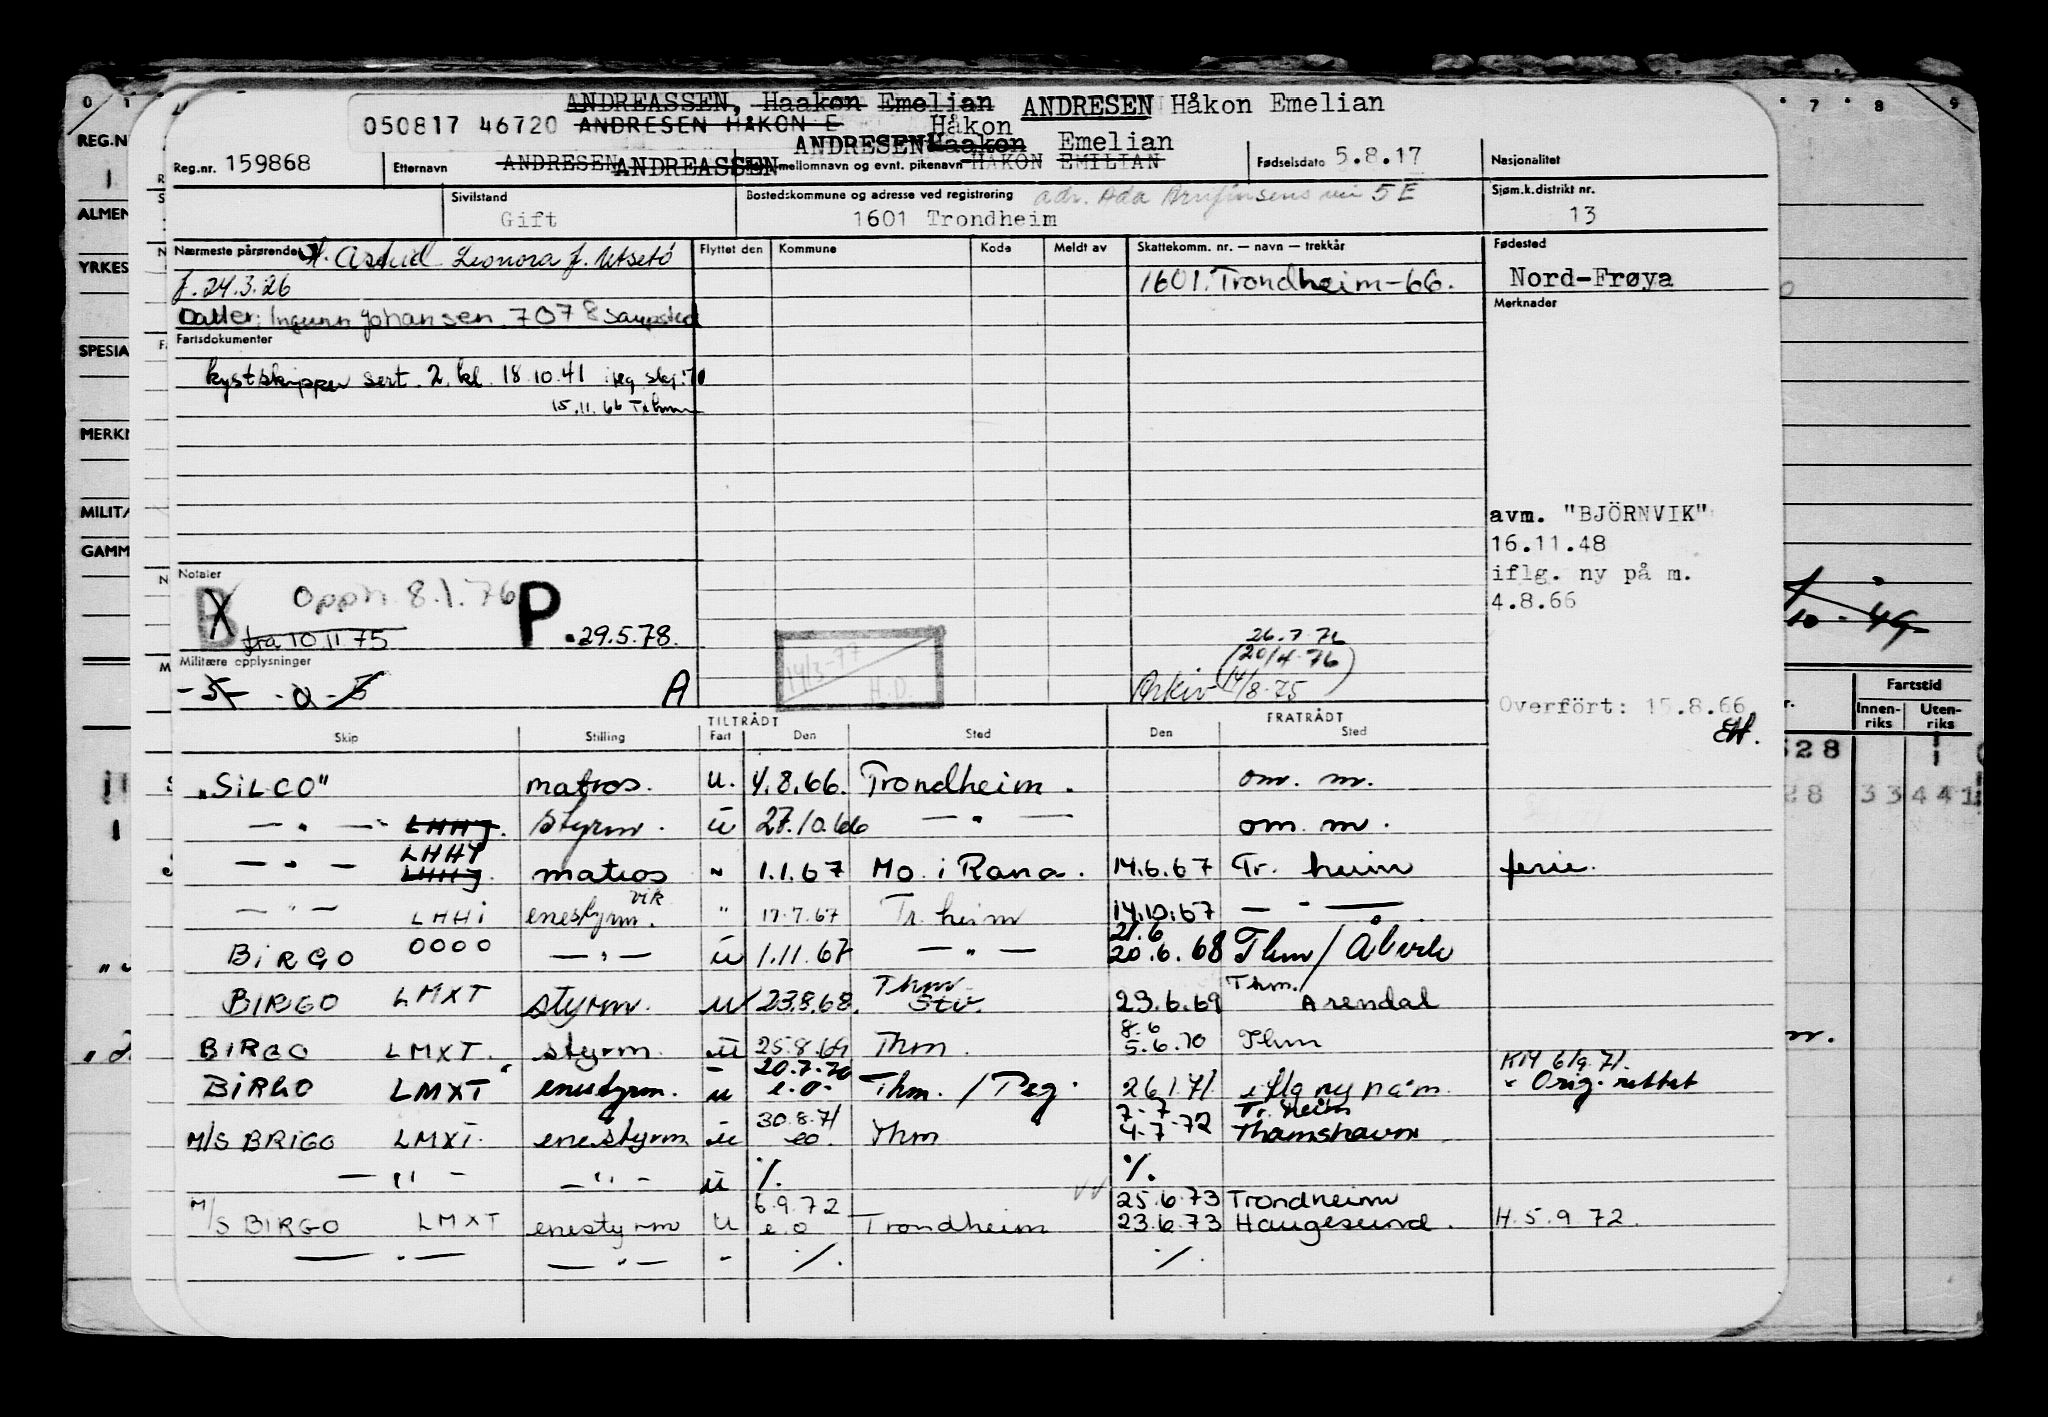 ANDREASSEN, Haakon Emelian ANDRESEN Håkon Emelian
050817 46720 ANDRESEN HÅKON E Håkon
ANDRESEN Haakon Emelian
Reg.nr. 159868 Etternavn ANDRESEN ANDREASSEN mellomnavn og evnt. pikenavn HÅKON EMILIAN Fødselsdato 5.8.17 Nasjonalitet
Sivilstand Bostedskommune og adresse ved registrering adr. Ada Arnfinsens vei 5 E Sjøm.k.distrikt nr.
Gift 1601 Trondheim 13
Nærmeste pårørende H. Astrid Leonora f. Utsetö Flyttet den Kommune Kode Meldt av Skattekomm. nr. — navn — trekkår Fødested
f. 24.3.26 1601. Trondheim-66. Nord-Frøya
Datter: Ingunn Johansen, 7078 Saupstad Merknader
Fartsdokumenter
kystskipper sert. 2. kl. 18.10.41
15.11.66
avm. "BJÖRNVIK"
16.11.48
iflg. ny på m.
4.8.66
Notater
B Opph. 8.1.76 P. 29.5.78.
fra 10.11.75
Militære opplysninger
A
14/3-77
H.D.
26.7.76
(20/4-76)
Arkiv 14/8-75
Overfört: 15.8.66
TILTRÅDT FRATRÅDT
Skip Stilling Fart Den Sted Den Sted
"SILCO" matros. u. 4.8.66. Trondheim. om. m.
— " — LHHJ. styrm. u 27.10.66 — " — om. m.
— " — LHHI LHHJ. matros " 1.1.67 Mo i Rana. 14.6.67 Tr. heim ferie.
— " — LHHI enestyrm. vik " 17.7.67 Tr. heim 14.10.67 — " —
BIRGO 0000 — " — u 1.11.67 — " — 21.6 20.6.68 Thm/
BIRGO LMXT styrm. u 23.8.68. Thm 23.6.69 Thm./ Arendal
BIRGO LMXT. styrm. u 25.8.69 Thm. 8.6 5.6.70 Thm
BIRGO LMXT enestyrm. u 20.7.70 e.o. Thm. / Peg. 26.1.71. iflg ny på m. KM 6/9.71. Orig. rettet
M/S BRIGO LMXT. enestyrm u 30.8.71 eo. Thm 7-7 4-7-72 Tr. heim Thamshavn
— " — — " — u %. %.
M/S BIRGO LMXT enestyrm u 6.9.72 e.o Trondheim 25.6.73 23.6.73 Trondheim Haugesund. H. 5.9.72.
— " — — " — - %. %.
REG.N
ALMEN
YRKES
SPESIA
MERKN
MILITÆ
GAMM
Fartstid
Innen-riks Uten-riks